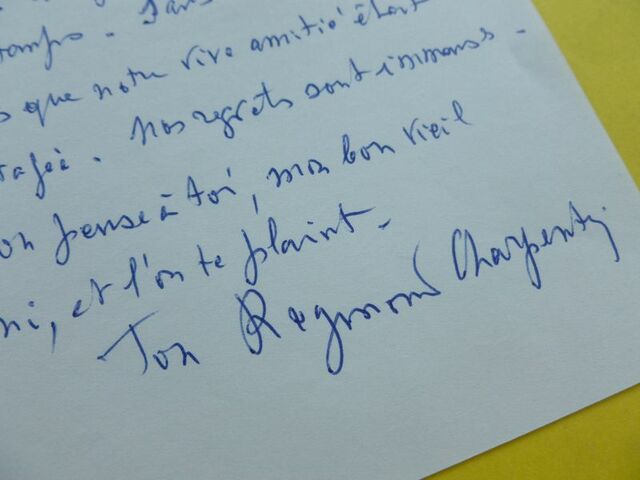 temps. Sans
que notre vive amitié était
Nos regrets sont immenses.
on pense à toi, mon bon vieil
mi, et l'on te plaint.
Ton Raymond Charpentier